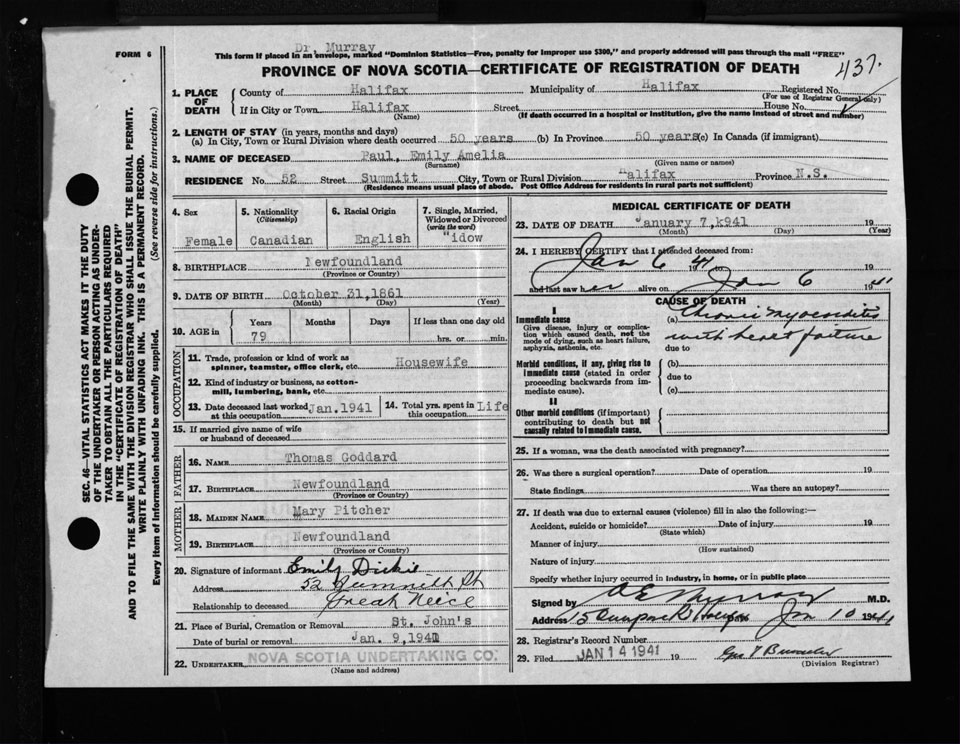 FORM 6
Dr. Murray
This form if placed in an envelope, marked "Dominion Statistics—Free, penalty for improper use $300," and properly addressed will pass through the mail "FREE"
PROVINCE OF NOVA SCOTIA—CERTIFICATE OF REGISTRATION OF DEATH
437.
1. PLACE OF DEATH
County of Halifax Municipality of Halifax Registered No.
(For use of Registrar General only)
If in City or Town Halifax Street House No.
(Name) (If death occurred in a hospital or institution, give the name instead of street and number)
2. LENGTH OF STAY (in years, months and days)
(a) In City, Town or Rural Division where death occurred 50 years (b) In Province 50 years (c) In Canada (if immigrant)
3. NAME OF DECEASED Paul, Emily Amelia
(Surname) (Given name or names)
RESIDENCE No. 52 Street Summitt City, Town or Rural Division Halifax Province N.S.
(Residence means usual place of abode. Post Office Address for residents in rural parts not sufficient)
4. Sex
Female
5. Nationality
(Citizenship)
Canadian
6. Racial Origin
English
7. Single, Married, Widowed or Divorced
(write the word)
"idow
8. BIRTHPLACE Newfoundland
(Province or Country)
9. DATE OF BIRTH October 31,1861
(Month) (Day) (Year)
10. AGE in
Years Months Days If less than one day old
79 hrs. or min.
OCCUPATION
11. Trade, profession or kind of work as spinner, teamster, office clerk, etc. Housewife
12. Kind of industry or business, as cotton-mill, lumbering, bank, etc.
13. Date deceased last worked at this occupation Jan.1941
14. Total yrs. spent in this occupation Life
15. If married give name of wife or husband of deceased
FATHER
16. NAME Thomas Goddard
17. BIRTHPLACE Newfoundland
(Province or Country)
MOTHER
18. MAIDEN NAME Mary Pitcher
19. BIRTHPLACE Newfoundland
(Province or Country)
20. Signature of informant Emily Dickie
Address 52 Summitt St
Relationship to deceased Great Neice
21. Place of Burial, Cremation or Removal St. John's
Date of burial or removal Jan. 9,1941
22. UNDERTAKER NOVA SCOTIA UNDERTAKING CO.
(Name and address)
MEDICAL CERTIFICATE OF DEATH
23. DATE OF DEATH January 7,k941 19
(Month) (Day) (Year)
24. I HEREBY CERTIFY that I attended deceased from:
Jan 6 1941 19
and last saw her alive on Jan 6 1941
CAUSE OF DEATH
I
Immediate cause
Give disease, injury or complication which caused death, not the mode of dying, such as heart failure, asphyxia, asthenia, etc.
(a) Chronic Myocarditis
with heart failure
due to
Morbid conditions, if any, giving rise to immediate cause (stated in order proceeding backwards from immediate cause).
(b)
due to
(c)
II
Other morbid conditions (if important) contributing to death but not causally related to immediate cause.
25. If a woman, was the death associated with pregnancy?
26. Was there a surgical operation? Date of operation 19
State findings Was there an autopsy?
27. If death was due to external causes (violence) fill in also the following:—
Accident, suicide or homicide? Date of injury 19
(State which)
Manner of injury
(How sustained)
Nature of injury
Specify whether injury occurred in industry, in home, or in public place
Signed by A E Murray M.D.
Address 15 Jan 10 1941
28. Registrar's Record Number
29. Filed JAN 14 1941 19
(Division Registrar)
SEC. 46—VITAL STATISTICS ACT MAKES IT THE DUTY
OF THE UNDERTAKER OR PERSON ACTING AS UNDER-
TAKER TO OBTAIN ALL THE PARTICULARS REQUIRED
IN THE "CERTIFICATE OF REGISTRATION OF DEATH"
AND TO FILE THE SAME WITH THE DIVISION REGISTRAR WHO SHALL ISSUE THE BURIAL PERMIT.
WRITE PLAINLY WITH UNFADING INK. THIS IS A PERMANENT RECORD.
Every item of information should be carefully supplied. (See reverse side for instructions.)